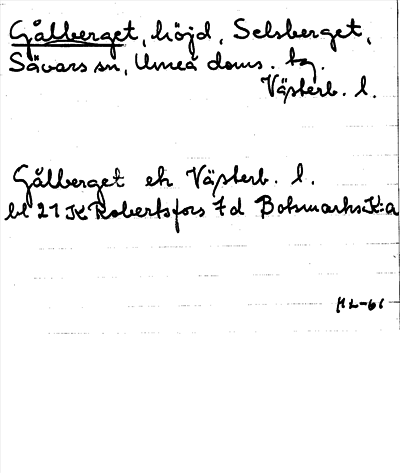 Gålberget, höjd, Selsberget,
Sävars sn, Umeå doms. tg.
Västerb. l.
Gålberget ek Västerb. l.
bl 21 K Robertsfors 7d Botsmarks K:a
HL-61